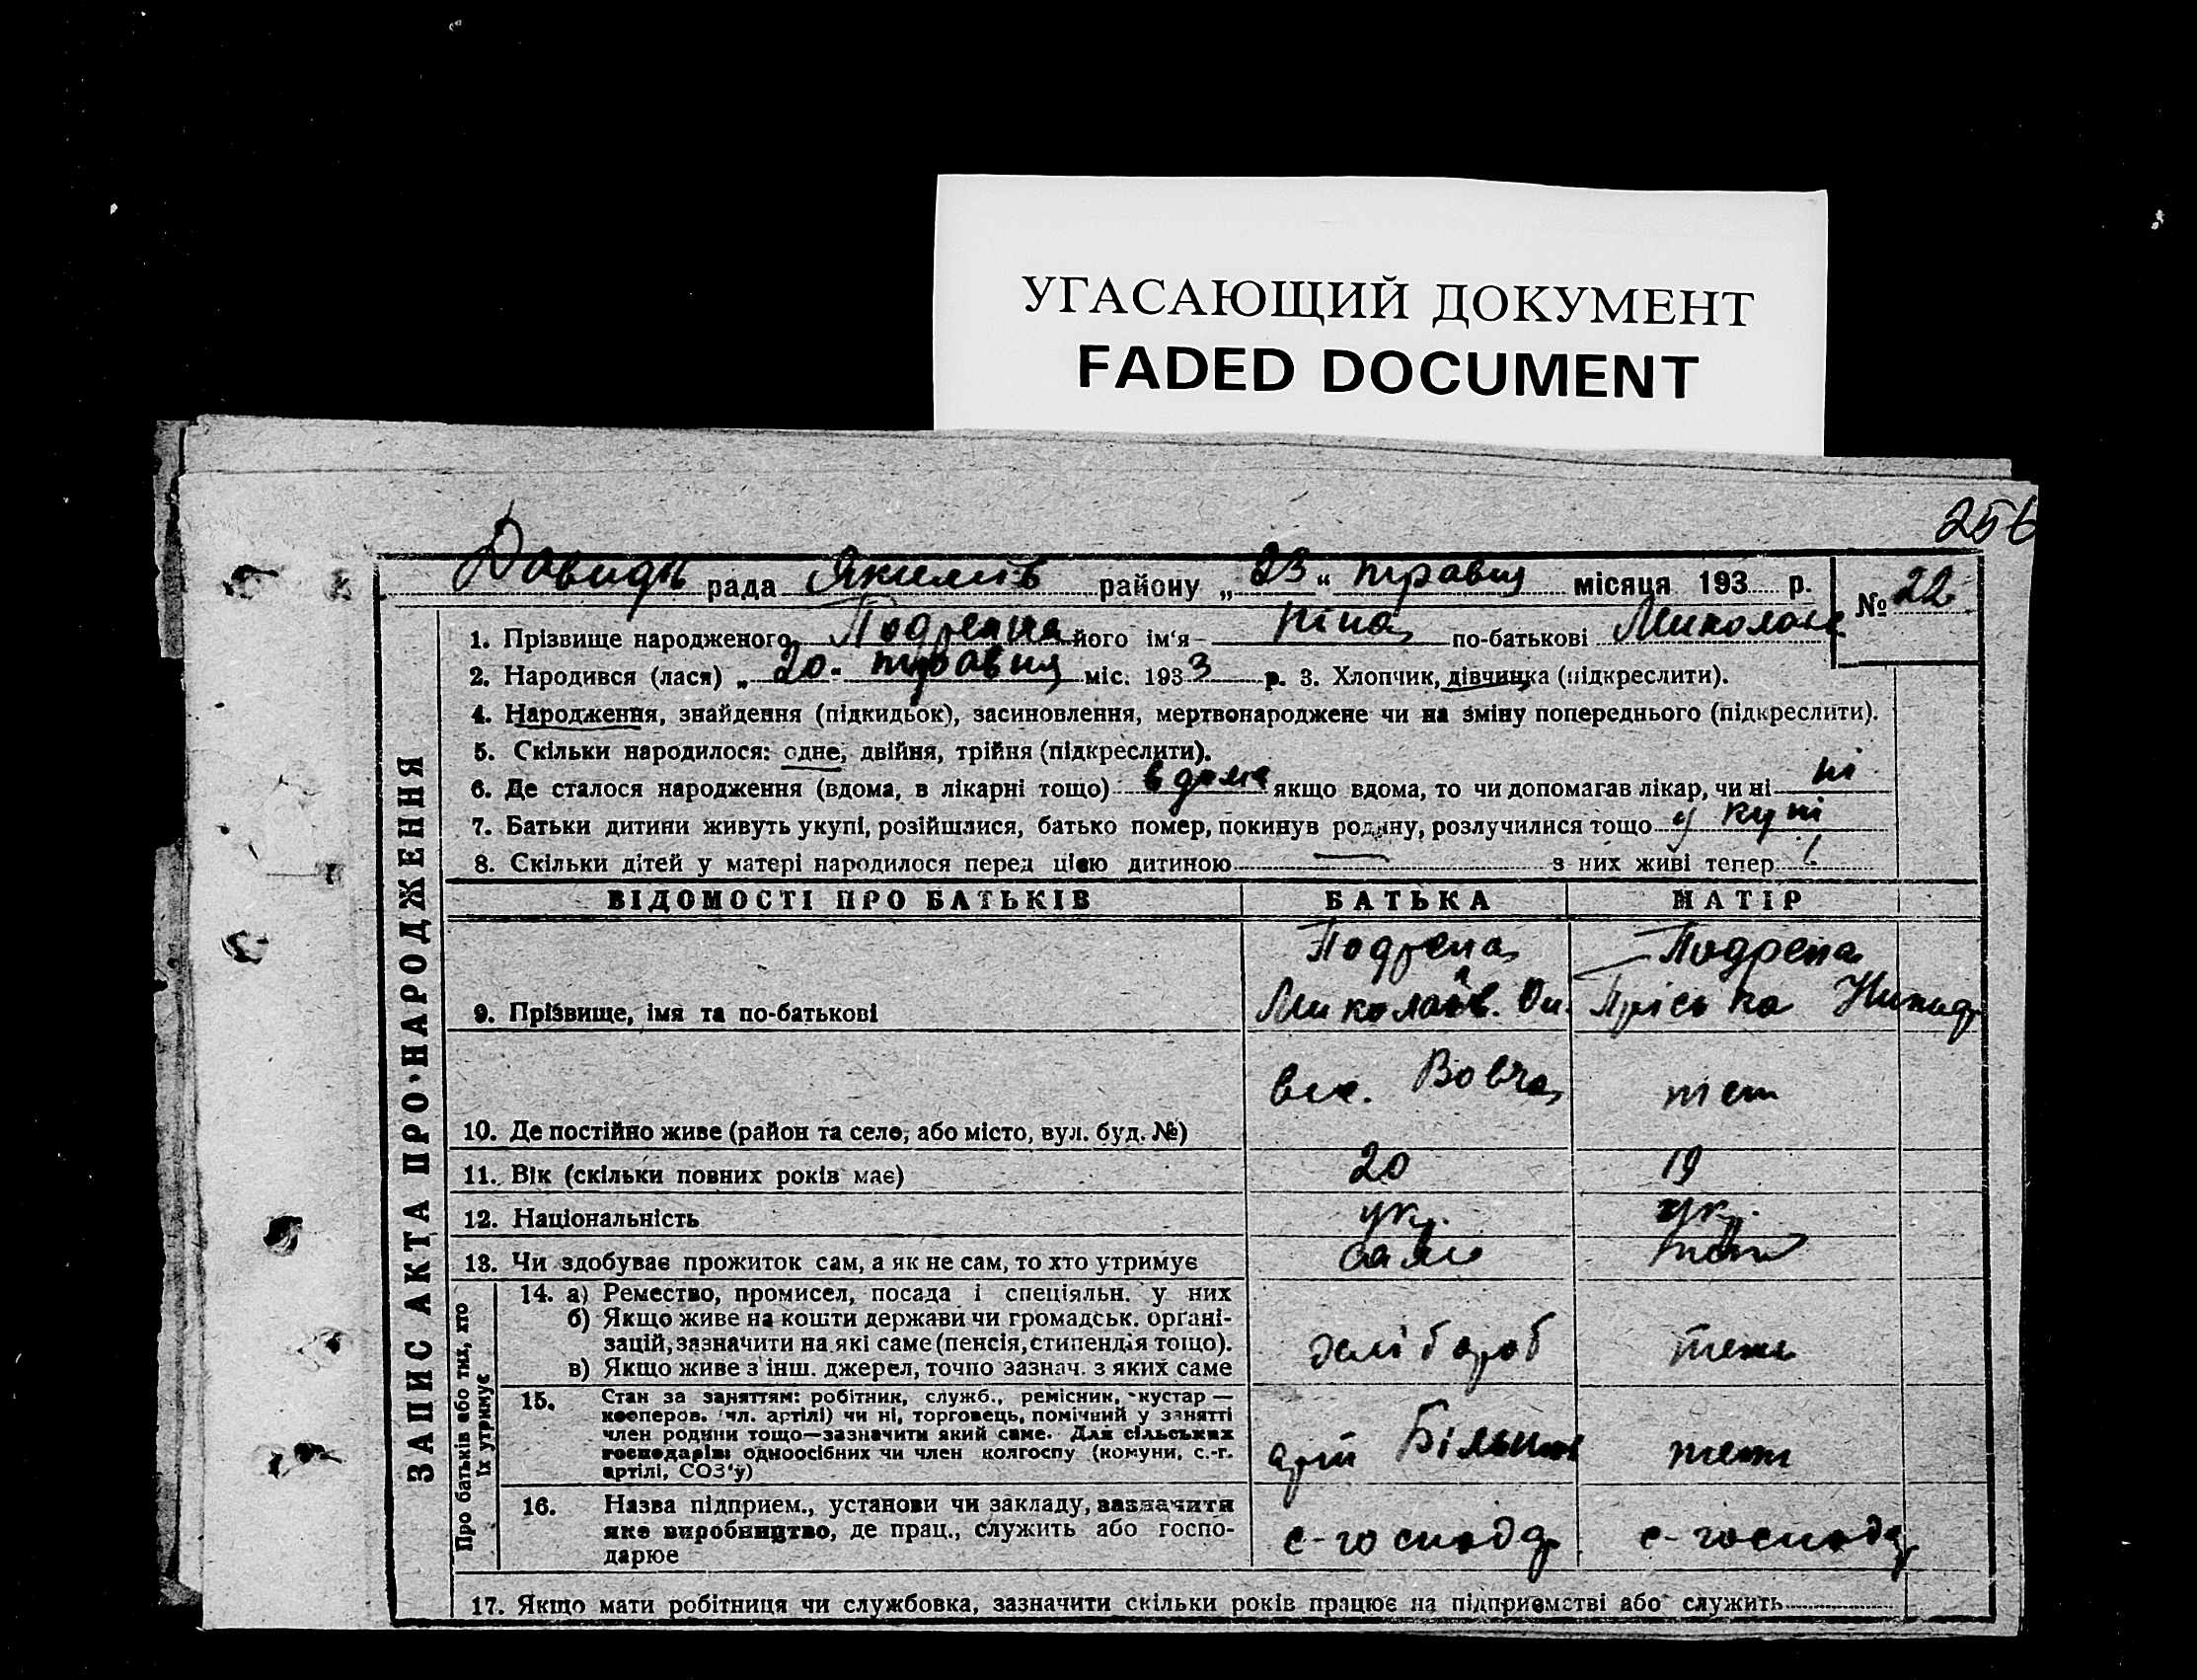 УГАСАЮЩИЙ ДОКУМЕНТ
FADED DOCUMENT
256
Давидів рада Якимів району „23“ травня місяця 193 р. № 22
1. Прізвище народженого Подрепа його ім'я Ніна по-батькові Микола
2. Народився (лася) „20" травня міс. 1933 р. 3. Хлопчик, дівчинка (підкреслити).
4. Народження, знайдення (підкидьок), засиновлення, мертвонароджене чи на зміну попереднього (підкреслити).
5. Скільки народилося: одне, двійня, трійня (підкреслити).
6. Де сталося народження (вдома, в лікарні тощо) вдома якщо вдома, то чи допомагав лікар, чи ні ні
7. Батьки дитини живуть укупі, розійшлися, батько помер, покинув родину, розлучилися тощо у купі
8. Скільки дітей у матері народилося перед цією дитиною — з них живі тепер
ЗАПИС АКТА ПРО НАРОДЖЕННЯ
ВІДОМОСТІ ПРО БАТЬКІВ БАТЬКА МАТІР
9. Прізвище, імя та по-батькові
Подрепа Миколай Он.
Подрепа Пріська Никиф
10. Де постійно живе (район та село, або місто, вул. буд. №) Вовча
11. Вік (скільки повних років має) 20 19
12. Національність укр. укр.
13. Чи здобуває прожиток сам, а як не сам, то хто утримує сам
Про батьків або тих, хто їх утримує
14. а) Ремество, промисел, посада і спеціяльн. у них
б) Якщо живе на кошти держави чи громадськ. органі-
зацій, зазначити на які саме (пенсія, стипендія тощо).
в) Якщо живе з інш. джерел, точно зазнач. з яких саме
хлібороб теж
15. Стан за заняттям: робітник, служб., ремісник, кустар —
кооперов. (чл. артілі) чи ні, торговець, помічний у занятті
член родини тощо—зазначити який саме. Для сільських
господарів: одноосібних чи член колгоспу (комуни, с.-г.
артілі, СОЗ'у)
арті Більшов теж
16. Назва підприєм., установи чи закладу, зазначити
яке виробництво, де прац., служить або госпо-
дарює
с-господр с-господр
17. Якщо мати робітниця чи службовка, зазначити скільки років працює на підприємстві або служить